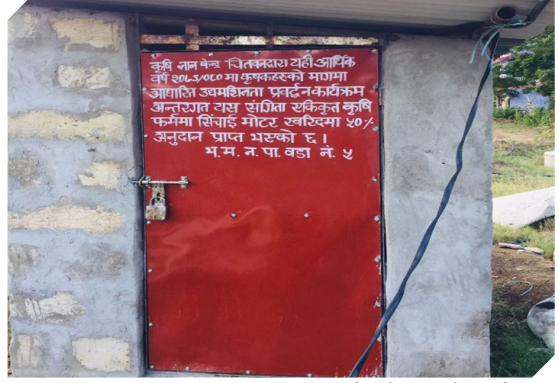 कृषि ज्ञान केन्द्र चितवनद्वारा यही आर्थिक
वर्ष २०८०/०८१ मा कृषकहरुको मागमा
आधारित उद्यमशिलता प्रवर्द्धन कार्यक्रम
अन्तरगत यस संगिता एकिकृत कृषि
फर्ममा सिंचाई मोटर खरिदमा ५०%
अनुदान प्राप्त भएको छ ।
भ. म. न. पा. वडा नं. ५